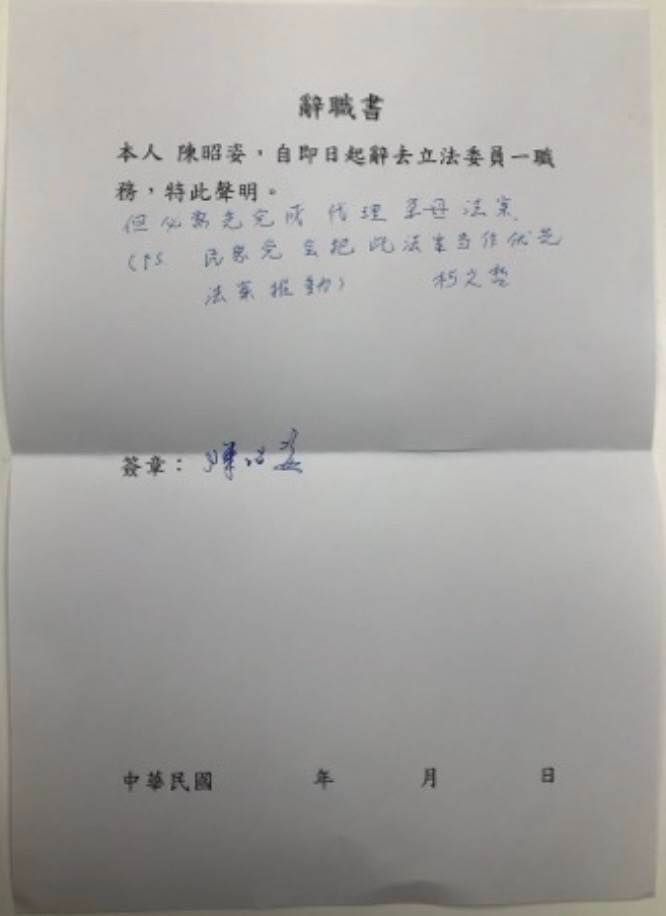 辭職書
本人 陳昭姿，自即日起辭去立法委員一職
務，特此聲明。
但必需先完成 代理孕母法案
(PS 民眾党会把此法案当作优先
法案推動)　　柯文哲
簽章：陳昭姿
中華民國　　年　　月　　日